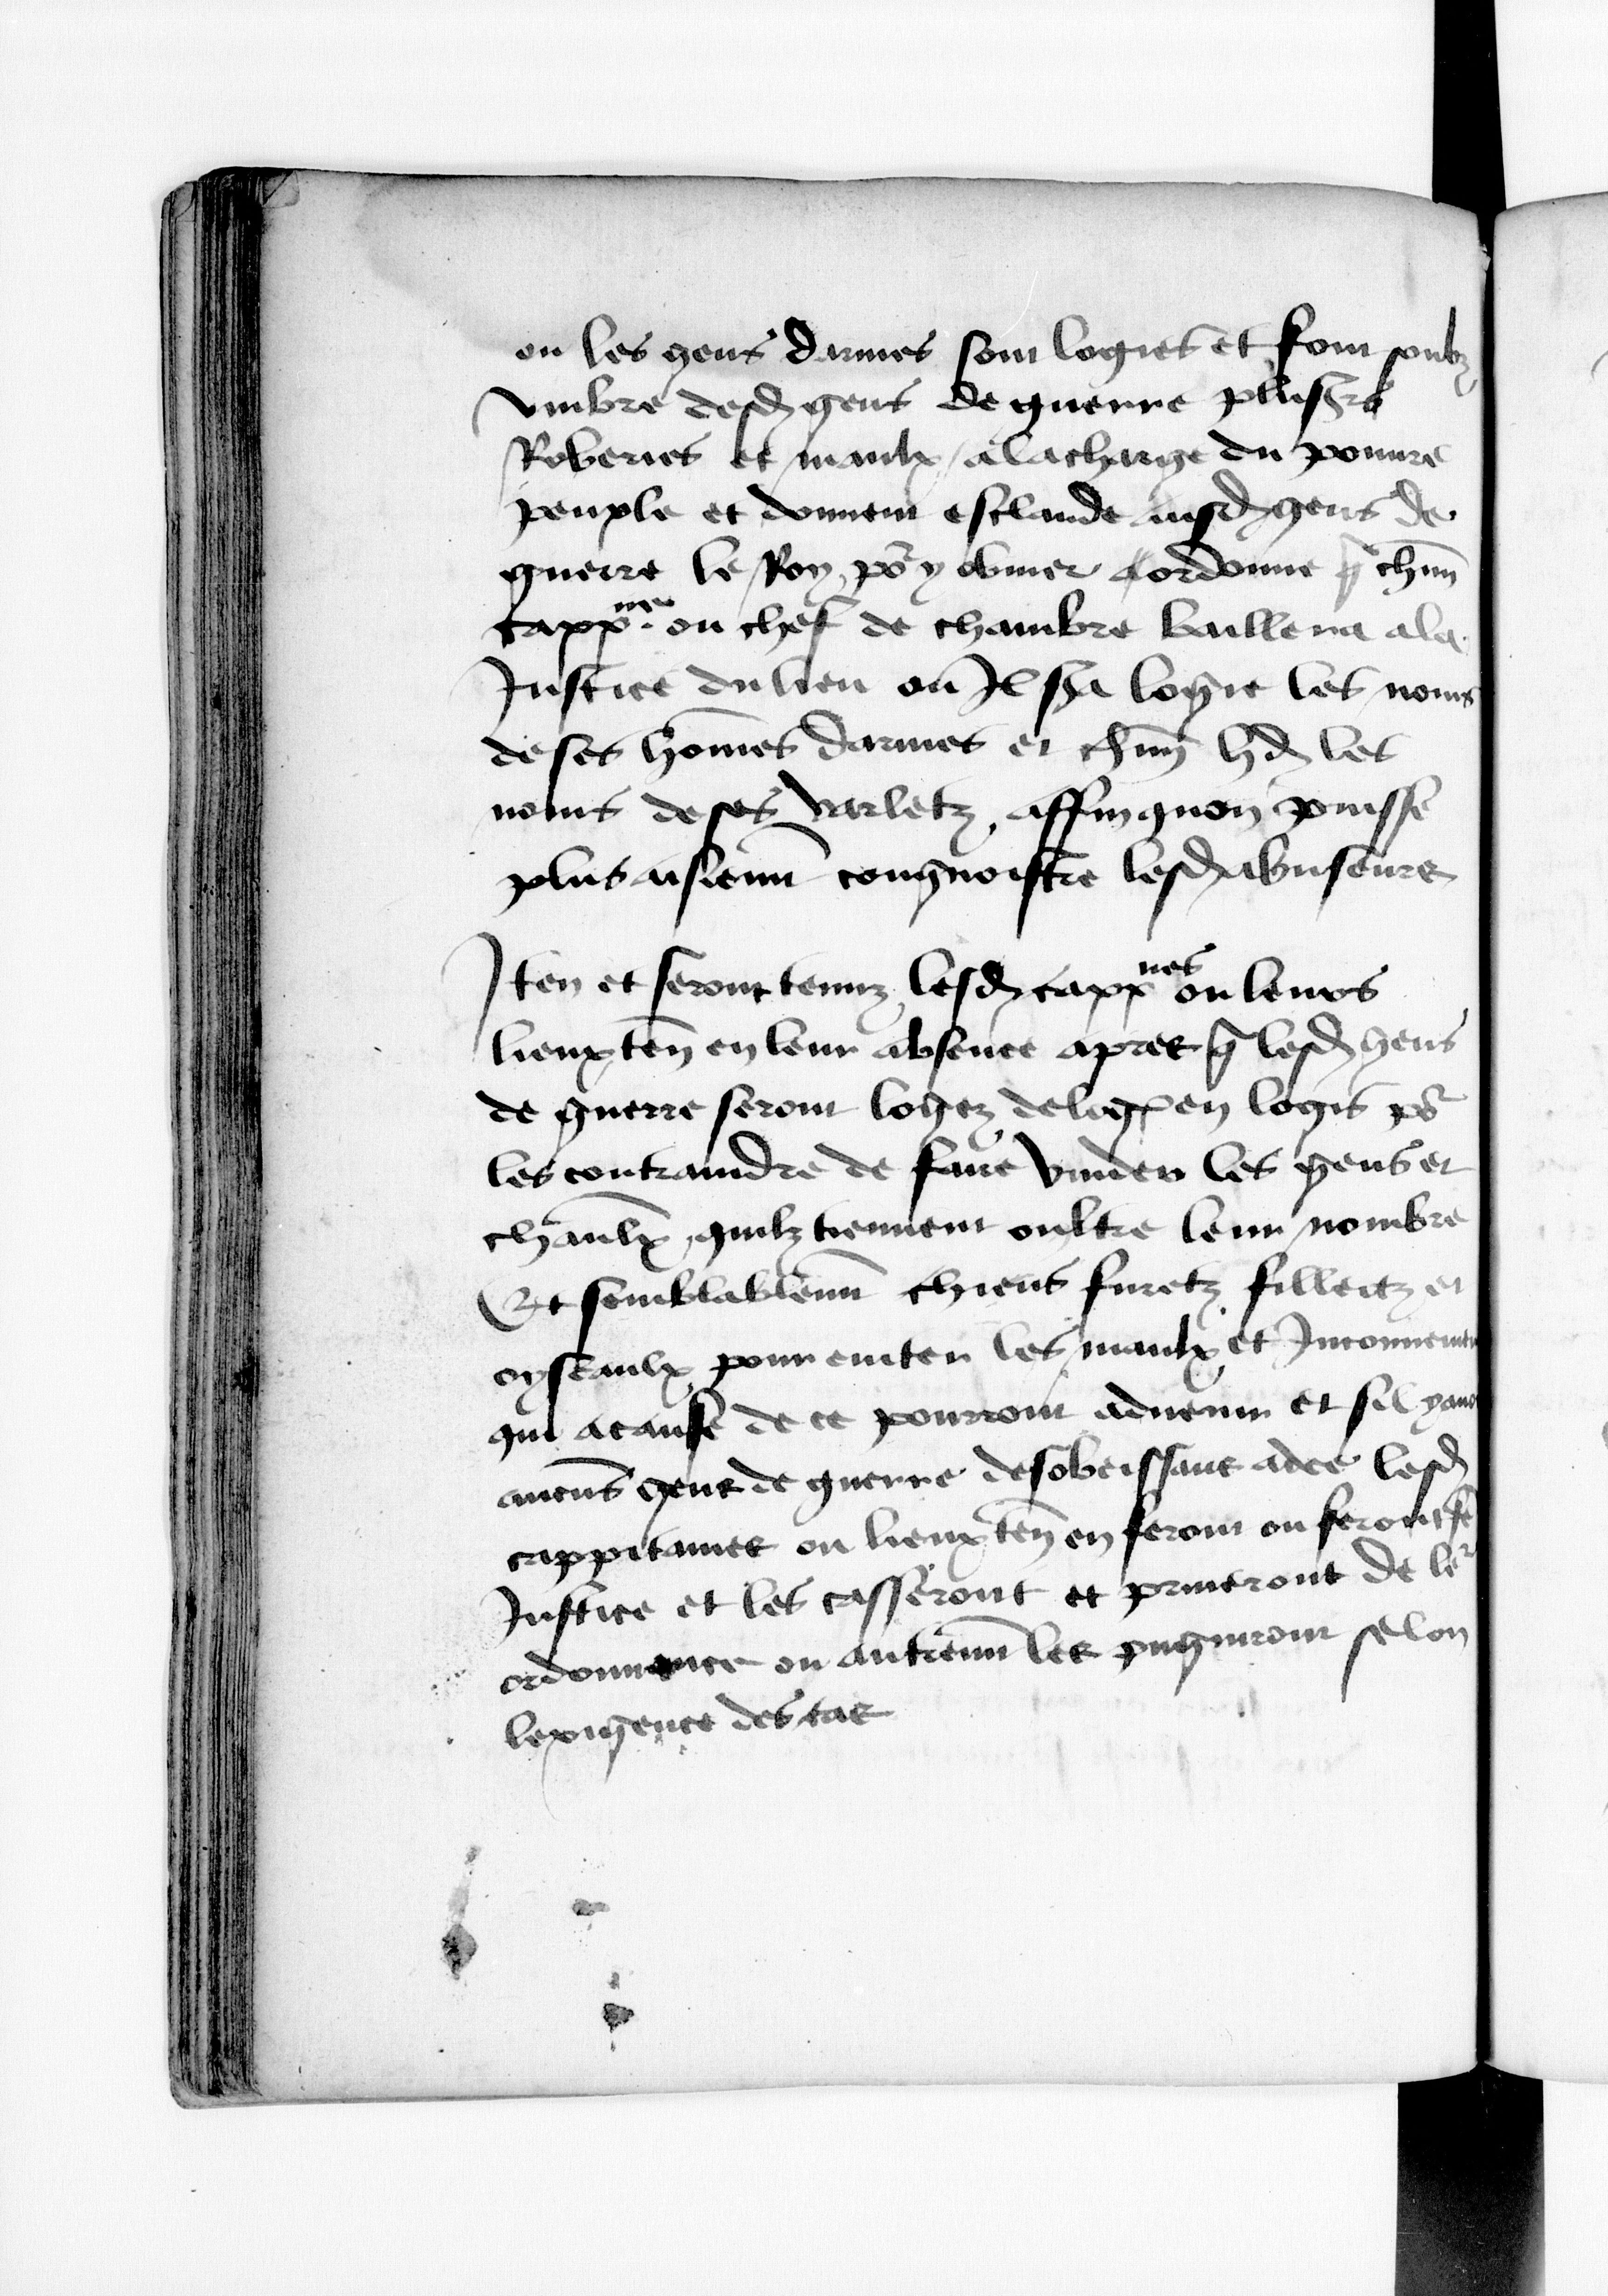 ou les gens darmes sont logies et font soubz
vmbre desd gens de guerre plusrs
Roberies et maulx alacharge du pouure
peuple et donnent esclande ausd gens de
guerre le Roy por y obuier a ordonne q chun
cappne ou chef de chambre baillera ala
Justice du lieu ou Il sra logie les noms
de ses hommes darmes et chun hd les
noms de ses varletz affin quon puisse
plus aisiemt congnoistre lesd abuseurs
Iten et seront tenuz lesd cappnes ou leurs
lieuxten en leur absence apres q lesd gens
de guerre seront logez de logs en logis por
les contraindre de faire vuider les gens et
chaulx quilz tiennent oultre leur nombre
Et semblablemt chiens furetz filletz et
oyseaulx pour euiter les maulx et Inconuenien
qui acause de ce pourront aduenir et sil yauo
aucuns gens de guerre desobeissans adce lesd
cappitaines ou lieuxten en feront ou feront fe
Justice et les casseront et priueront de ler
ordonnance ou autremt les pugniront selon
lexigence des cas